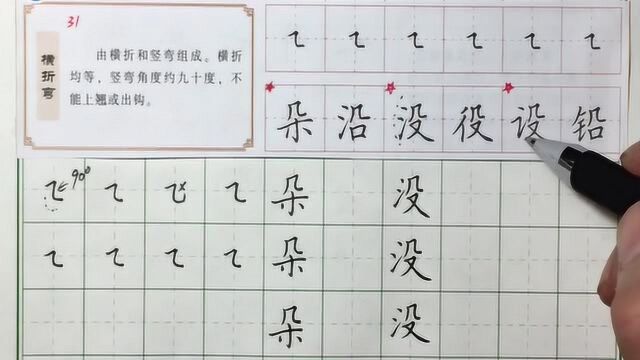 31
横折弯
由横折和竖弯组成。横折
均等，竖弯角度约九十度，不
能上翘或出钩。
朵 沿 没 役 设 铅
90°
朵 没
朵 没
朵 没